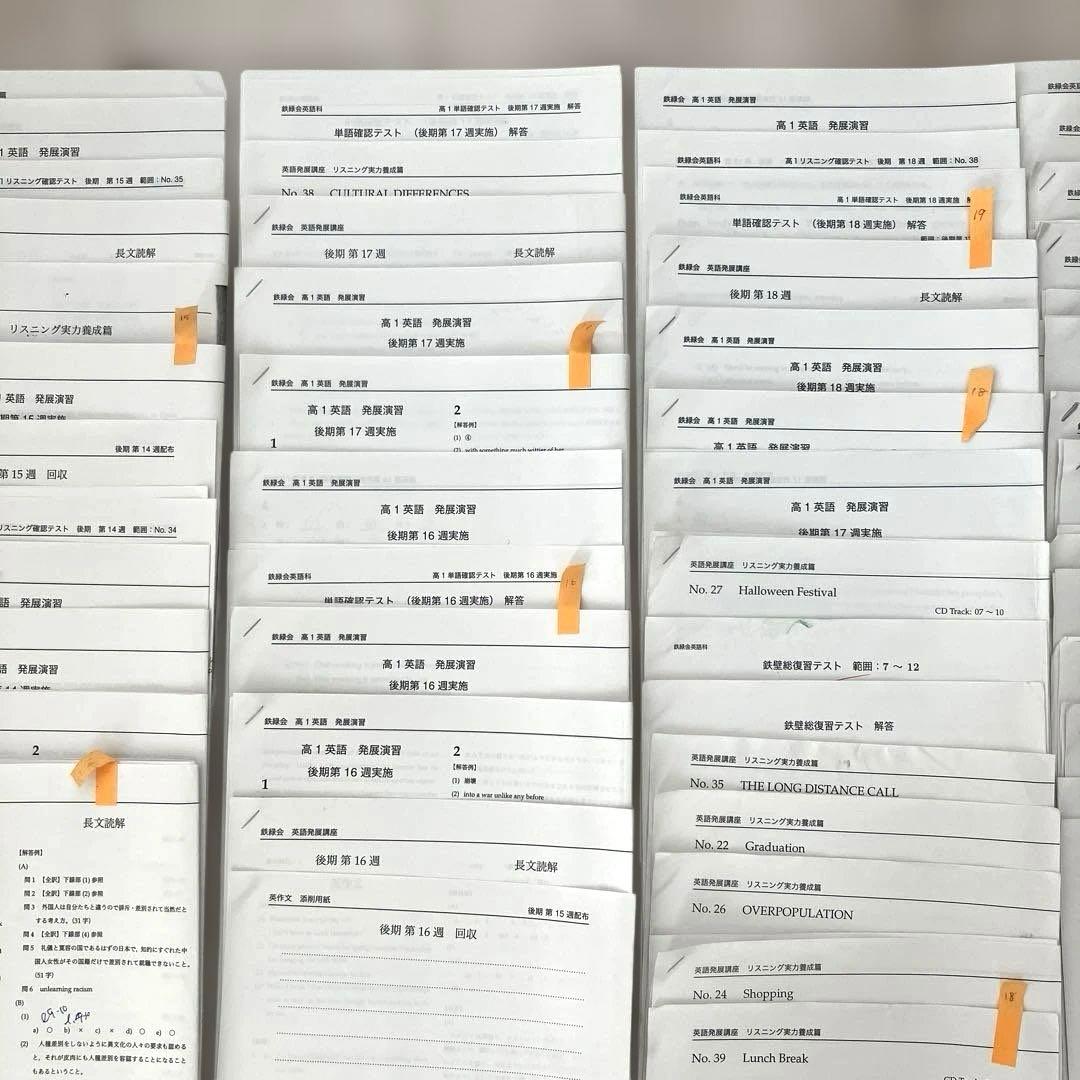 1英語 発展演習
リスニング確認テスト 後期 第15週 範囲：No. 35
長文読解
リスニング実力養成篇
15
語 発展演習
第15週実施
後期 第14週配布
第15週 回収
リスニング確認テスト 後期 第14週 範囲：No. 34
語 発展演習
語 発展演習
14週実施
2
長文読解
【解答例】
(A)
問1 【全訳】下線部(1)参照
問2 【全訳】下線部(2)参照
問3 外国人は自分たちと違うので排斥・差別されて当然だと
する考え方。(31字)
問4 【全訳】下線部(4)参照
問5 礼儀と寛容の国であるはずの日本で、知的にすぐれた中
国人女性がその国籍だけで差別されて就職できないこと。
(51字)
問6 unlearning racism
(B)
(1)
a) ○ b) × c) × d) ○ e) ○
(2) 人種差別をしないように異文化の人々の要求も認める
と、それが皮肉にも人種差別を容認することになること
もあるということ。
鉄緑会英語科 高1単語確認テスト 後期第17週実施 解答
単語確認テスト （後期第17週実施） 解答
英語発展講座 リスニング実力養成篇
No. 38 CULTURAL DIFFERENCES
鉄緑会 英語発展講座
後期 第17週 長文読解
鉄緑会 高1英語 発展演習
高1英語 発展演習
後期第17週実施
鉄緑会 高1英語 発展演習
高1英語 発展演習 2
後期第17週実施 【解答例】
(1) ④
1 (2) with something much wittier of her
鉄緑会 高1英語 発展演習
高1英語 発展演習
後期第16週実施
鉄緑会英語科 高1単語確認テスト 後期第16週実施
単語確認テスト （後期第16週実施） 解答
16
鉄緑会 高1英語 発展演習
高1英語 発展演習
後期第16週実施
鉄緑会 高1英語 発展演習
高1英語 発展演習 2
後期第16週実施 【解答例】
(1) 崩壊
1 (2) into a war unlike any before
鉄緑会 英語発展講座
後期 第16週 長文読解
英作文 添削用紙 後期 第15週配布
後期 第16週 回収
鉄緑会 高1英語 発展演習
高1英語 発展演習
鉄緑会英語科 高1リスニング確認テスト 後期 第18週 範囲：No. 38
鉄緑会英語科 高1単語確認テスト 後期第18週実施
単語確認テスト （後期第18週実施） 解答
19
鉄緑会 英語発展講座
後期 第18週 長文読解
鉄緑会 高1英語 発展演習
高1英語 発展演習
後期第18週実施
18
鉄緑会 高1英語 発展演習
高1英語 発展演習
鉄緑会 高1英語 発展演習
高1英語 発展演習
後期第17週実施
英語発展講座 リスニング実力養成篇
No. 27 Halloween Festival
CD Track: 07～10
鉄緑会英語科
鉄壁総復習テスト 範囲：7 ～ 12
鉄壁総復習テスト 解答
英語発展講座 リスニング実力養成篇
No. 35 THE LONG DISTANCE CALL
英語発展講座 リスニング実力養成篇
No. 22 Graduation
英語発展講座 リスニング実力養成篇
No. 26 OVERPOPULATION
英語発展講座 リスニング実力養成篇
No. 24 Shopping
18
英語発展講座 リスニング実力養成篇
No. 39 Lunch Break
鉄緑会英語
鉄緑会英